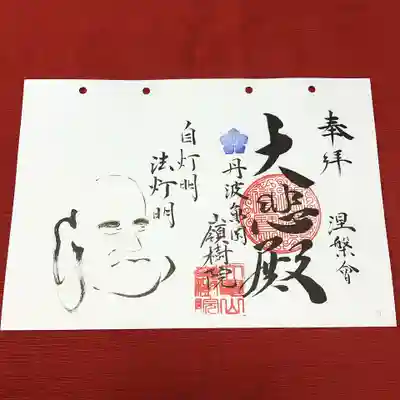 奉拝
涅槃會
大悲殿
丹波亀岡
嶺樹院
自灯明
法灯明